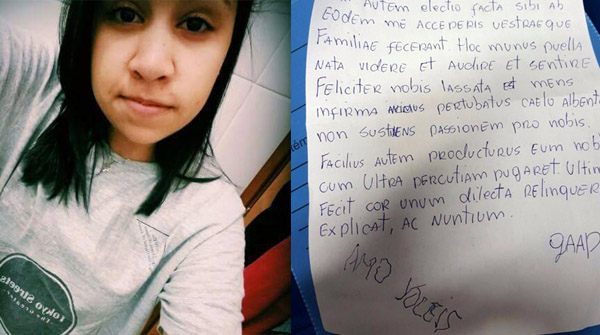 Tokyo Streets
AUTEM ELECTIO FACTA SIBI AB
EODEM ME ACCEDERIS VESTRAEQUE
FAMILIAE FECERANT. HOC MUNUS PUELLA
NATA VIDERE ET AUDIRE ET SENTIRE
FELICITER NOBIS LASSATA ET MENS
INFIRMA PERTUBATUS CAELO ALBENT
NON PASSIONEM PRO NOBIS.
FACILIUS AUTEM PRODUCTURUS EUM NOB
CUM ULTRA PERCUTIAM PUGARET. ULTIM
FECIT COR UNUM DILECTA RELINQUER
EXPLICAT, AC NUNTIUM.
GAAP
AMO